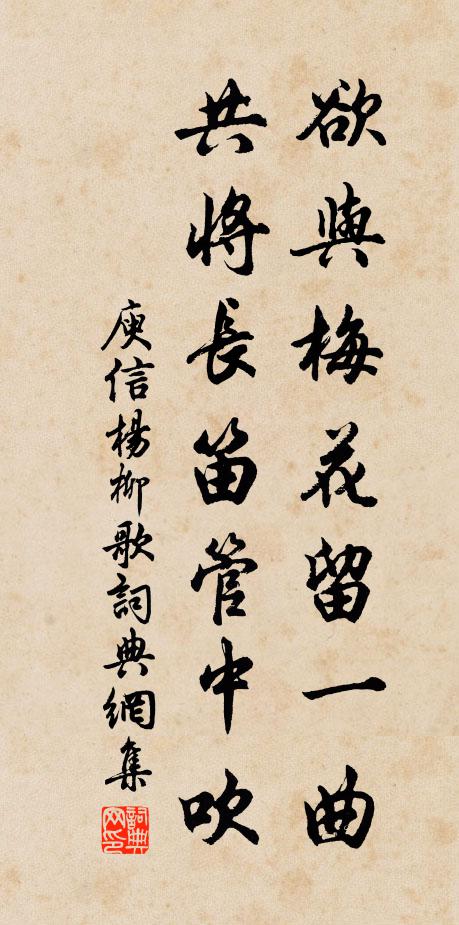 欲與梅花留一曲
共將長笛管中吹
庾信楊柳歌詞典網集
詞典網印